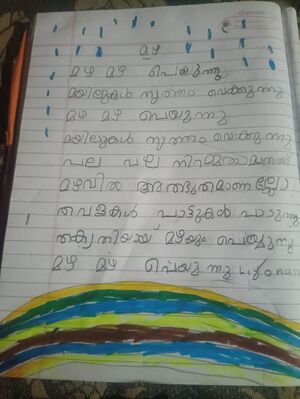 മഴ
മഴ മഴ പെയുന്നു
മയിലുകൾ നൃത്തം വെക്കുന്നു
മഴ മഴ പെയുന്നു
മയിലുകൾ നൃത്തം വെക്കുന്നു
പല പല
മഴവിൽ അത്ഭുതമാണല്ലോ
തവളകൾ പാട്ടുകൾ പാടുന്നു
മഴയും പെയ്യുന്നു
മഴ മഴ പെയുന്നു